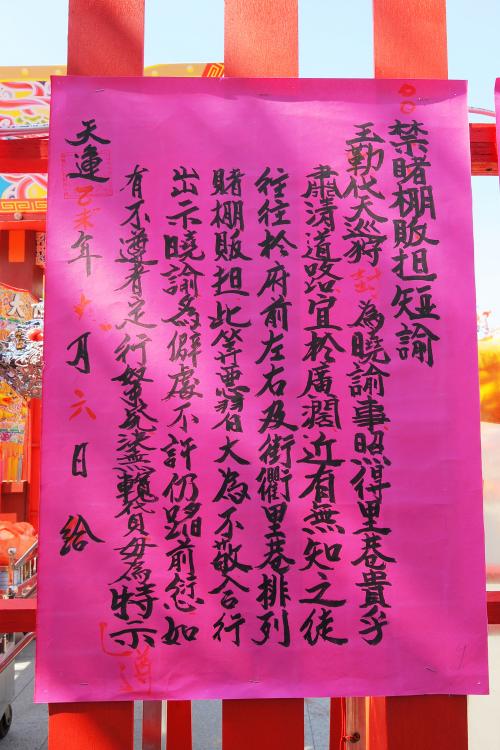 禁賭棚販担短諭
玉勅代天巡狩 封 為曉諭事照得里巷貴乎
肅清道路宜於廣濶近有無知之徒
往往於府前左右及街衢里巷排列
賭棚販担此等惡習大為不敬合行
出示曉諭為僻處不許仍蹈前愆如
有不遵者定行拏究決不輕貸毋為特示
天運乙未年 月六日給